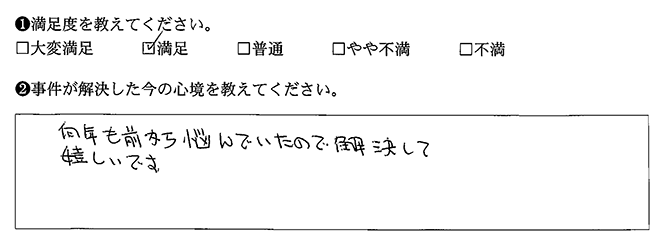 ❶満足度を教えてください。
□大変満足 ☑満足 □普通 □やや不満 □不満
❷事件が解決した今の心境を教えてください。
何年も前から悩んでいたので解決して
嬉しいです